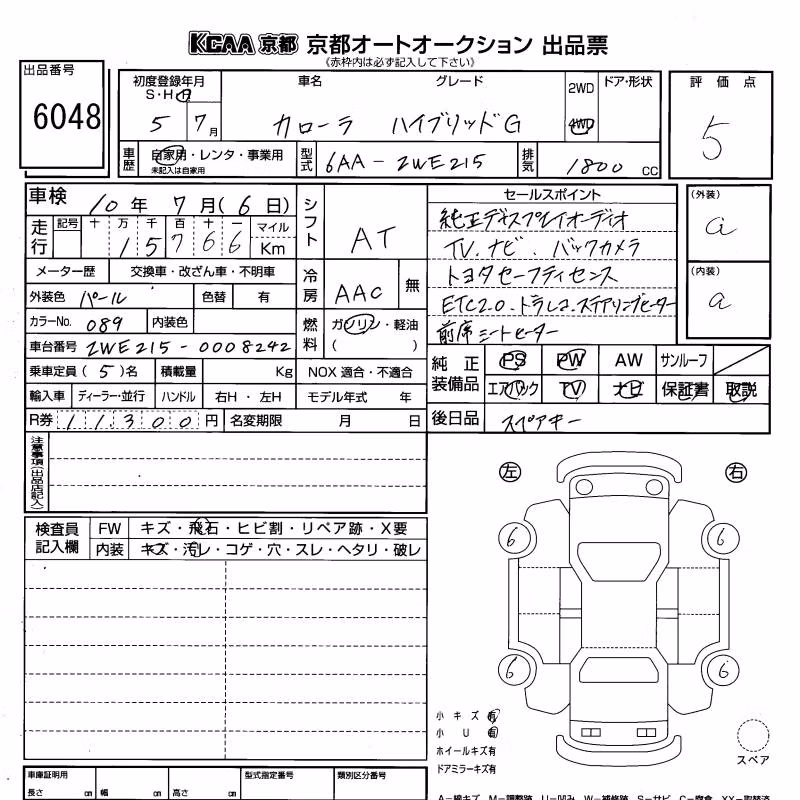 KCAA 京都 京都オートオークション 出品票
《赤枠内は必ず記入して下さい》
出品番号
6048
初度登録年月 車名 グレード 2WD ドア・形状
S・H・R 4WD
5 7月 カローラ ハイブリッドG
評価点
5
車歴 自家用・レンタ・事業用 型式 6AA-ZWE215 排気 1800 CC
未記入は自家用
車検 10年 7月(6日) シフト AT
走行 記号 十 万 千 百 十 一 マイル
1 5 7 6 6 Km
メーター歴 交換車・改ざん車・不明車 冷房 AAC 無
外装色 パール 色替 有
カラーNo. 089 内装色 燃料 ガソリン・軽油
( )
車台番号 ZWE215-0008242
乗車定員(5)名 積載量 Kg NOX 適合・不適合
輸入車 ディーラー・並行 ハンドル 右H・左H モデル年式 年
R券 11300円 名変期限 月 日
セールスポイント
純正ディスプレイオーディオ
TV.ナビ.バックカメラ
トヨタセーフティセンス
ETC2.0.ドラレコ.ステアリングヒーター
前席シートヒーター
(外装)
a
(内装)
a
純正装備品 PS PW AW サンルーフ
エアバック TV ナビ 保証書 取説
後日品 スペアキー
注意事項(出品店記入)
検査員記入欄 FW キズ・飛石・ヒビ割・リペア跡・X要
内装 キズ・汚レ・コゲ・穴・スレ・ヘタリ・破レ
左 右
6 6
6 6
小キズ有
小U有
ホイールキズ有
ドアミラーキズ有
スペア
車庫証明用 型式指定番号 類別区分番号
長さ cm 幅 cm 高さ cm